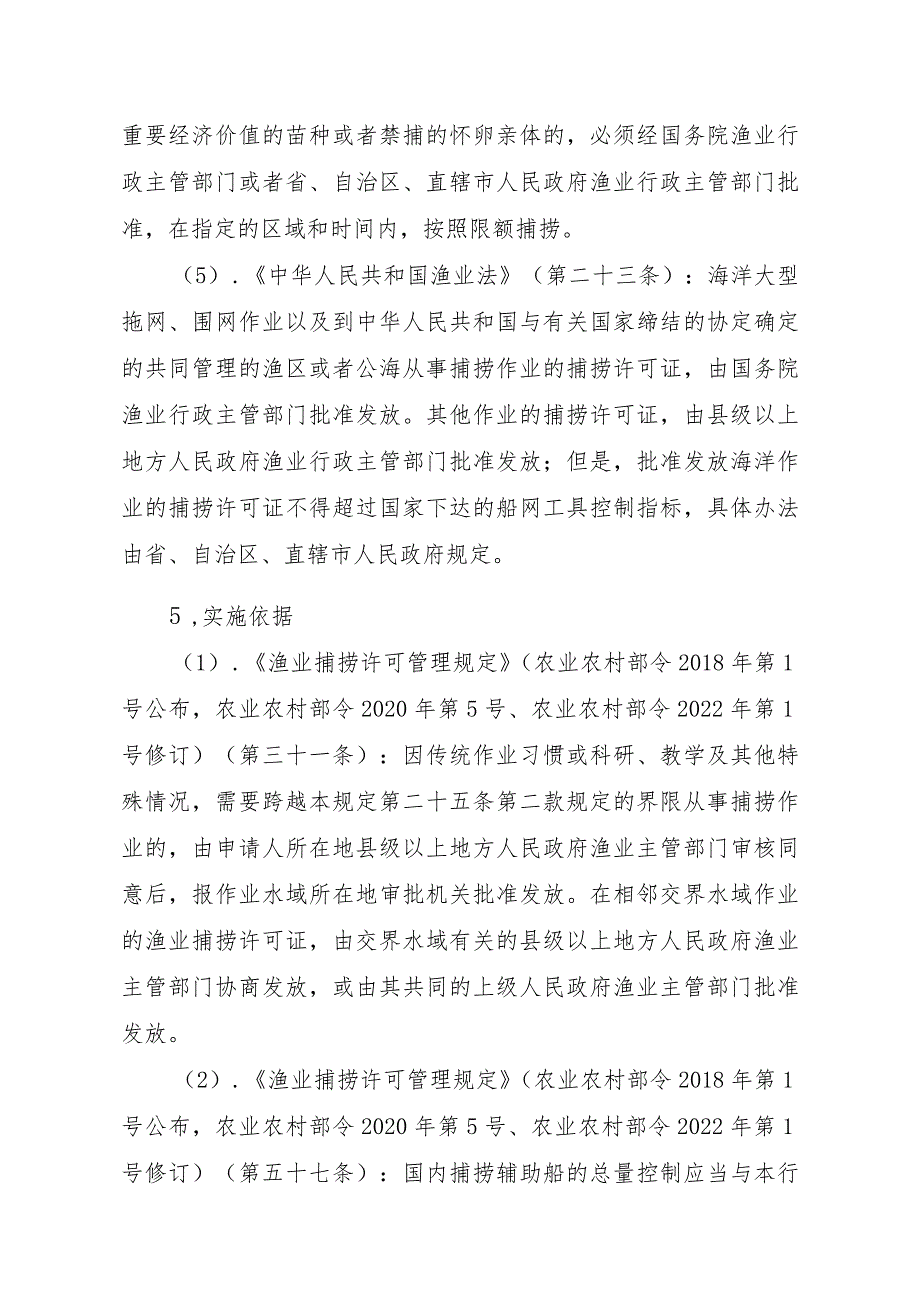 重要经济价值的苗种或者禁捕的怀卵亲体的，必须经国务院渔业行
政主管部门或者省、自治区、直辖市人民政府渔业行政主管部门批
准，在指定的区域和时间内，按照限额捕捞。
（5）.《中华人民共和国渔业法》（第二十三条）：海洋大型
拖网、围网作业以及到中华人民共和国与有关国家缔结的协定确定
的共同管理的渔区或者公海从事捕捞作业的捕捞许可证，由国务院
渔业行政主管部门批准发放。其他作业的捕捞许可证，由县级以上
地方人民政府渔业行政主管部门批准发放；但是，批准发放海洋作
业的捕捞许可证不得超过国家下达的船网工具控制指标，具体办法
由省、自治区、直辖市人民政府规定。
5 ,实施依据
（1）.《渔业捕捞许可管理规定》（农业农村部令 2018 年第 1
号公布，农业农村部令 2020 年第 5 号、农业农村部令 2022 年第 1
号修订）（第三十一条）：因传统作业习惯或科研、教学及其他特
殊情况，需要跨越本规定第二十五条第二款规定的界限从事捕捞作
业的，由申请人所在地县级以上地方人民政府渔业主管部门审核同
意后，报作业水域所在地审批机关批准发放。在相邻交界水域作业
的渔业捕捞许可证，由交界水域有关的县级以上地方人民政府渔业
主管部门协商发放，或由其共同的上级人民政府渔业主管部门批准
发放。
（2）.《渔业捕捞许可管理规定》（农业农村部令 2018 年第 1
号公布，农业农村部令 2020 年第 5 号、农业农村部令 2022 年第 1
号修订）（第五十七条）：国内捕捞辅助船的总量控制应当与本行